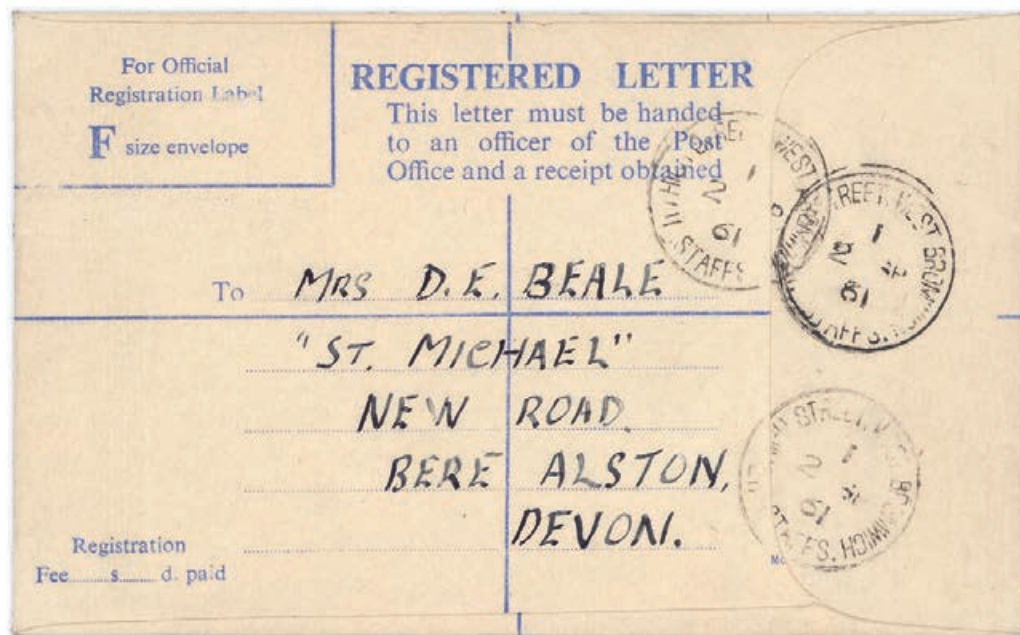 For Official
Registration Label
F size envelope
REGISTERED LETTER
This letter must be handed
to an officer of the Post
Office and a receipt obtained
To MRS D.E. BEALE
"ST. MICHAEL"
NEW ROAD.
BERE ALSTON,
DEVON.
Registration
Fee s d. paid
STREET, WEST BROMWICH
STAFFS.
1
2
61
STREET, WEST BROMWICH
STAFFS.
1
2
61
STREET, WEST BROMWICH
STAFFS.
1
2
61